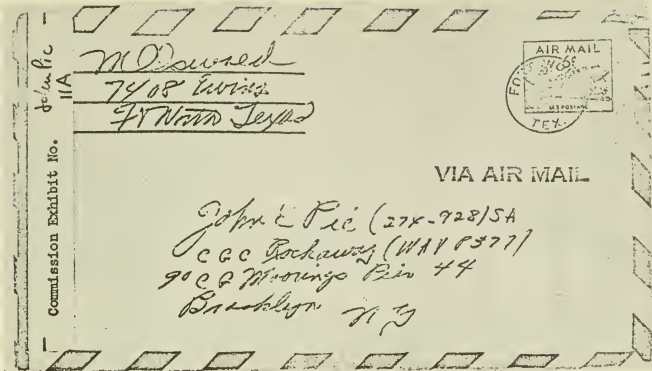 John Pic
11A
Commission Exhibit No.
M Oswald
7408 Ewing
Ft Worth Texas
AIR MAIL
6¢
TEX.
VIA AIR MAIL
John E Pic (274-928) SA
CGC Rockaway (WAV P377)
% CG Moorings Pier 44
Brooklyn N Y